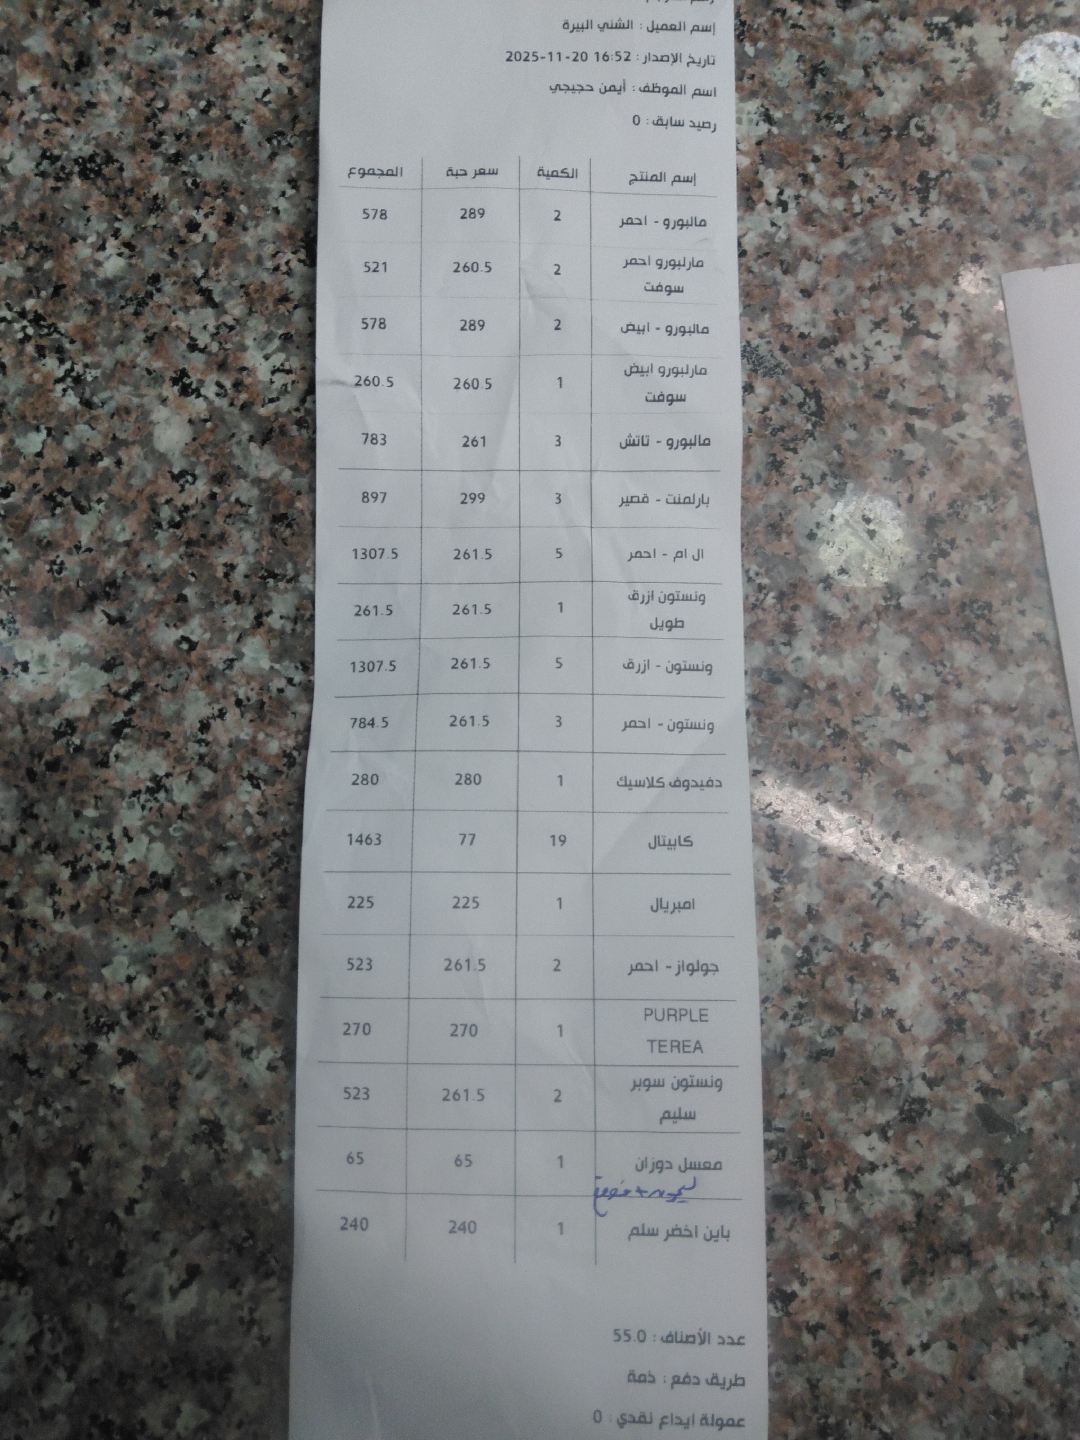 إسم العميل : الشني البيرة
تاريخ الإصدار : 16:52 20-11-2025
اسم الموظف : أيمن حجيجي
رصيد سابق : 0
إسم المنتج الكمية سعر حبة المجموع
مالبورو - احمر 2 289 578
مارلبورو احمر سوفت 2 260.5 521
مالبورو - ابيض 2 289 578
مارلبورو ابيض سوفت 1 260.5 260.5
مالبورو - تاتش 3 261 783
بارلمنت - قصير 3 299 897
ال ام - احمر 5 261.5 1307.5
ونستون ازرق طويل 1 261.5 261.5
ونستون - ازرق 5 261.5 1307.5
ونستون - احمر 3 261.5 784.5
دفيدوف كلاسيك 1 280 280
كابيتال 19 77 1463
امبريال 1 225 225
جولواز - احمر 2 261.5 523
PURPLE TEREA 1 270 270
ونستون سوبر سليم 2 261.5 523
معسل دوزان 1 65 65
باين اخضر سلم 1 240 240
عدد الأصناف : 55.0
طريق دفع : ذمة
عمولة ايداع نقدي : 0